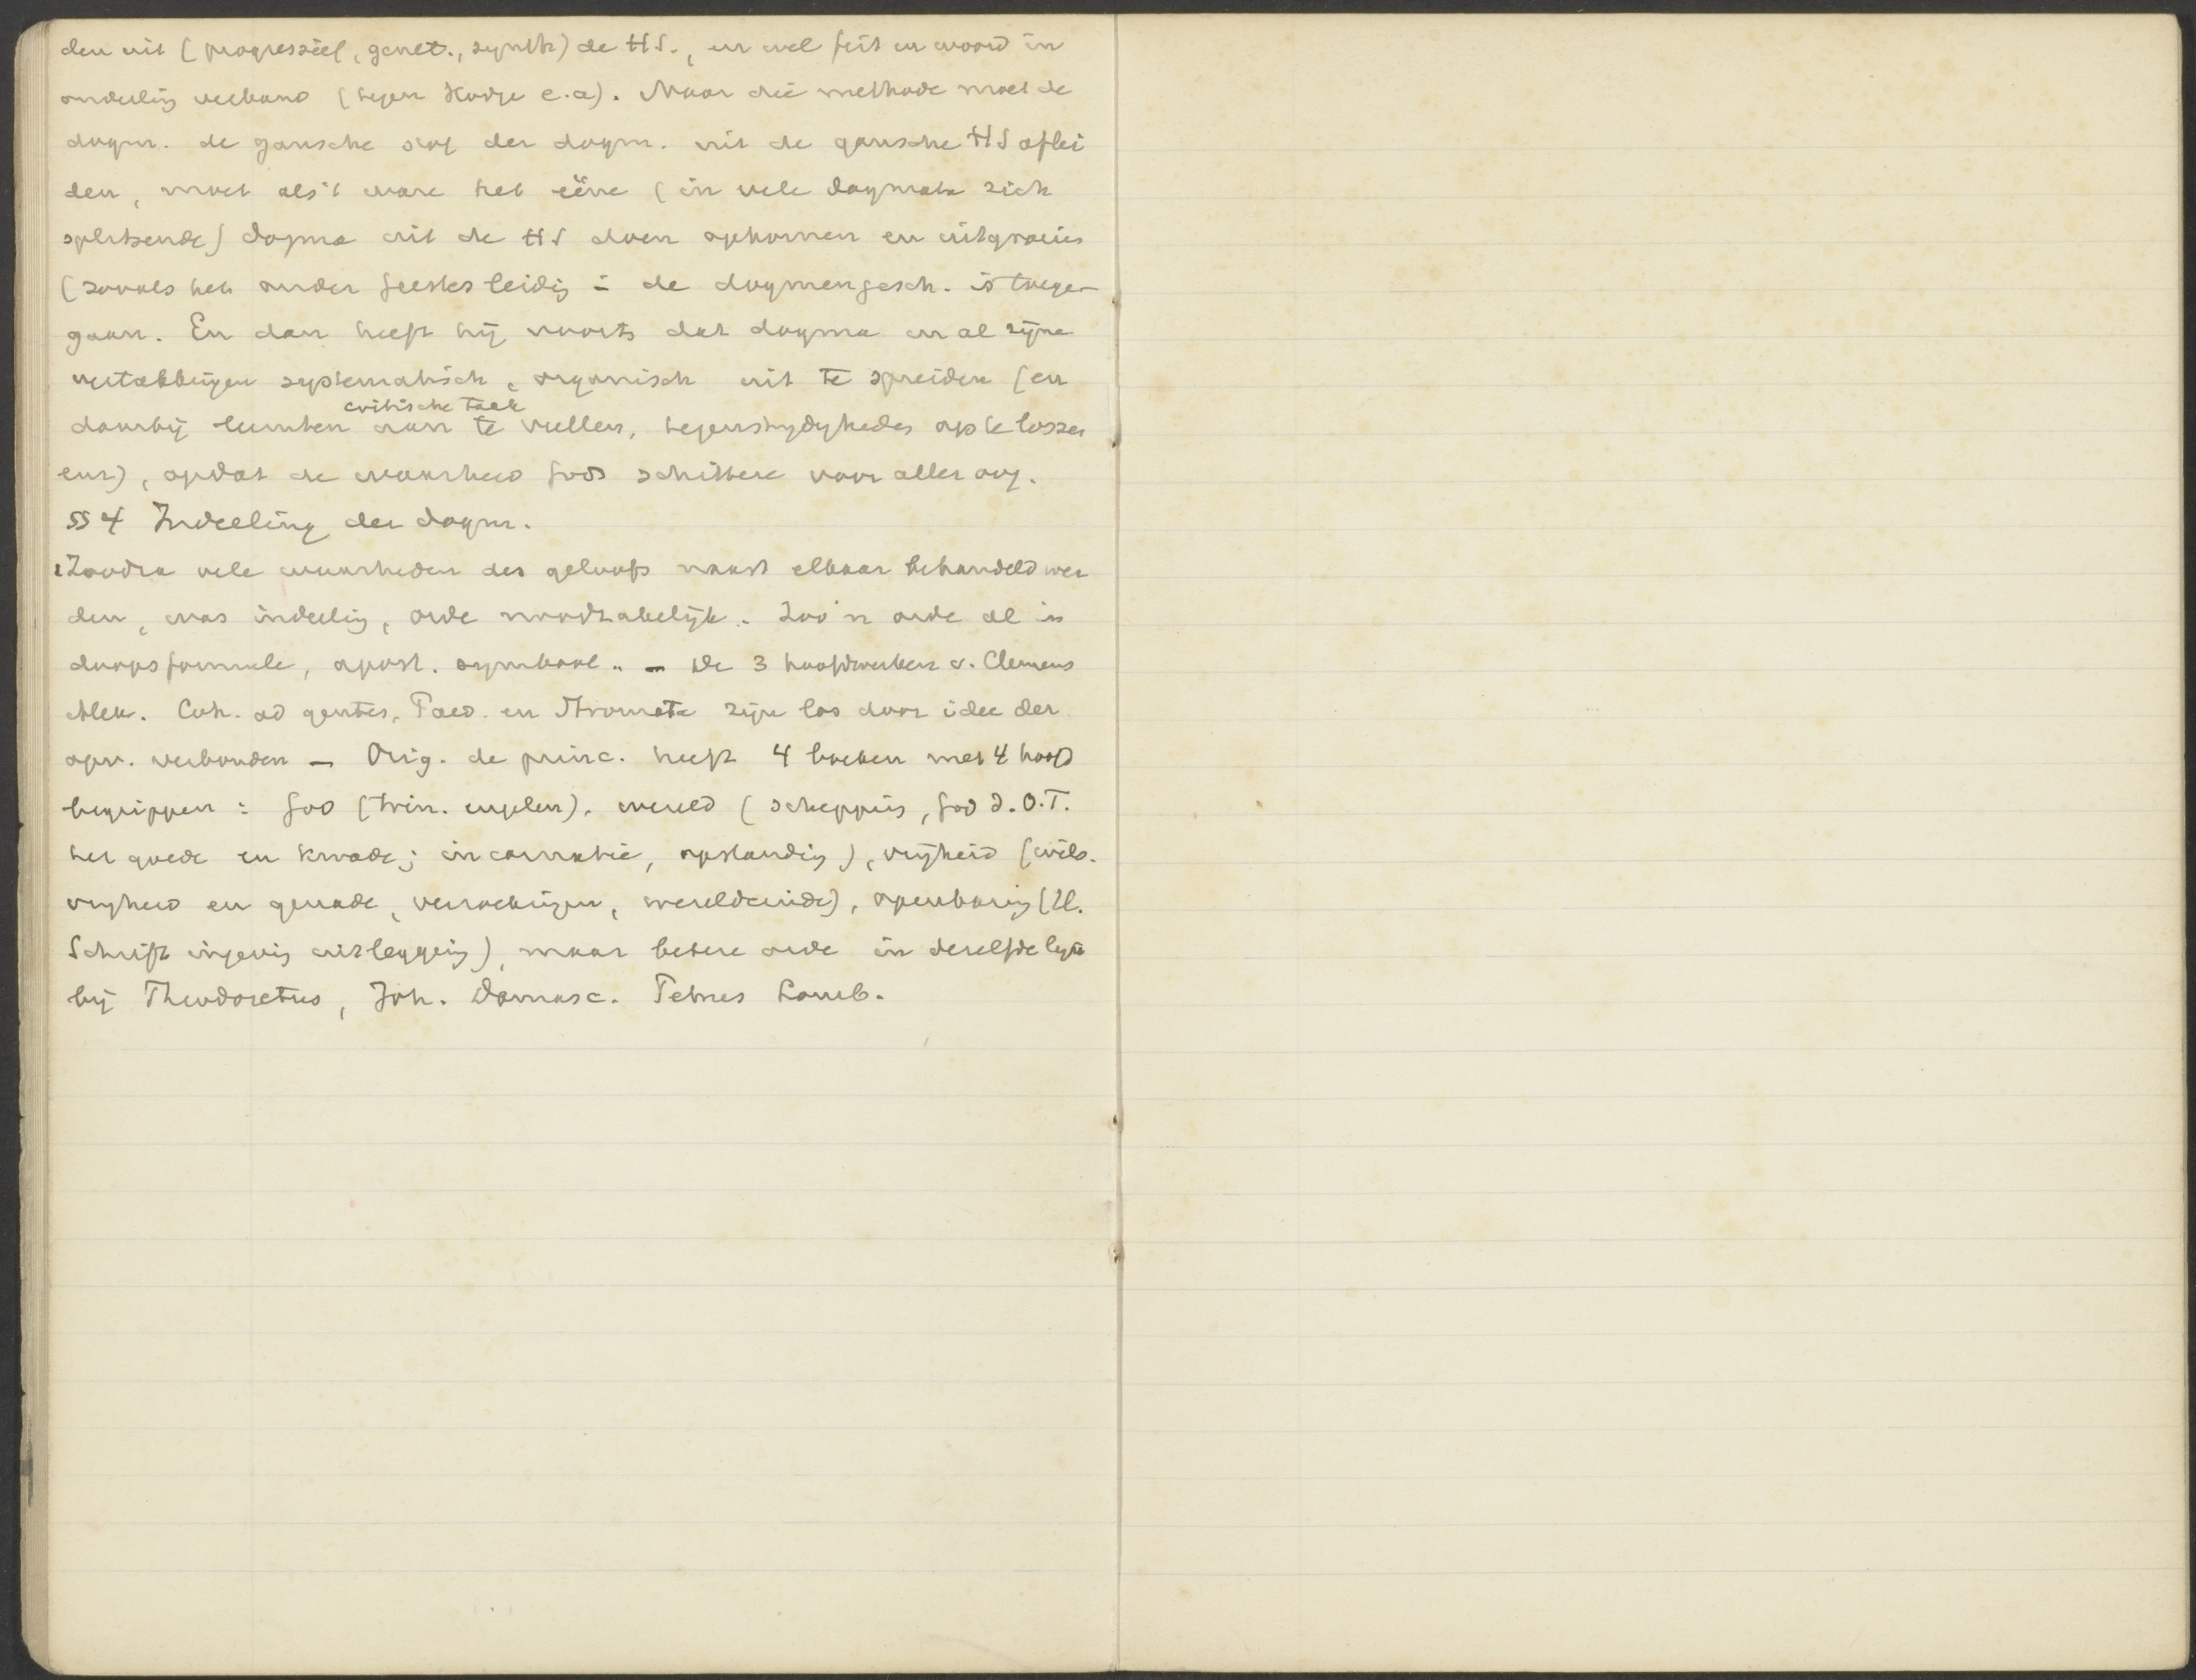 den uit (progressief, genet., synth) de HS., en wel feit en woord in
onderling verband (tegen Hodge e.a). Naar die methode moet de
dogm. de gansche stof der dogm. uit de gansche HS aflei
den, moet als 't ware het ééne (in vele dogmata zich
splitsende) dogma uit de HS doen opkomen en uitgroeien
(zooals het onder Geestes leidig in de dogmengesch. is toege-
gaan. En dan heeft hij voorts dat dogma in al zijne
vertakkingen systematisch, organisch uit te spreiden (en
critische taak
daarbij leemten aan te vullen, tegenstrydigheden op te lossen
enz), opdat de waarheid Gods schittere voor aller oog.
§§ 4 Indeeling der dogm.
1 Zoodra vele waarheden des geloofs naast elkaar behandeld wer
den, was indeelig, orde noodzakelijk. Zoo'n orde al in
doopsformule, apost. symbool. - De 3 hoofdwerken v. Clemens
Alex. Coh. ad gentes, Paed. en Stromata zijn los door idee der
opv. verbonden - Orig. de princ. heeft 4 boeken met 4 hoofd
begrippen: God (trin. engelen), wereld (scheppig, God d. O.T.
het goede en kwade; incarnatie, opstandig), vrijheid (wils-
vryheid en genade, verzoekingen, wereldeinde), openbaring (H.
Schrift ingevig uitlegging), maar betere orde in dezelfde lijn
bij Theodoretus, Joh. Damasc. Petrus Lomb.